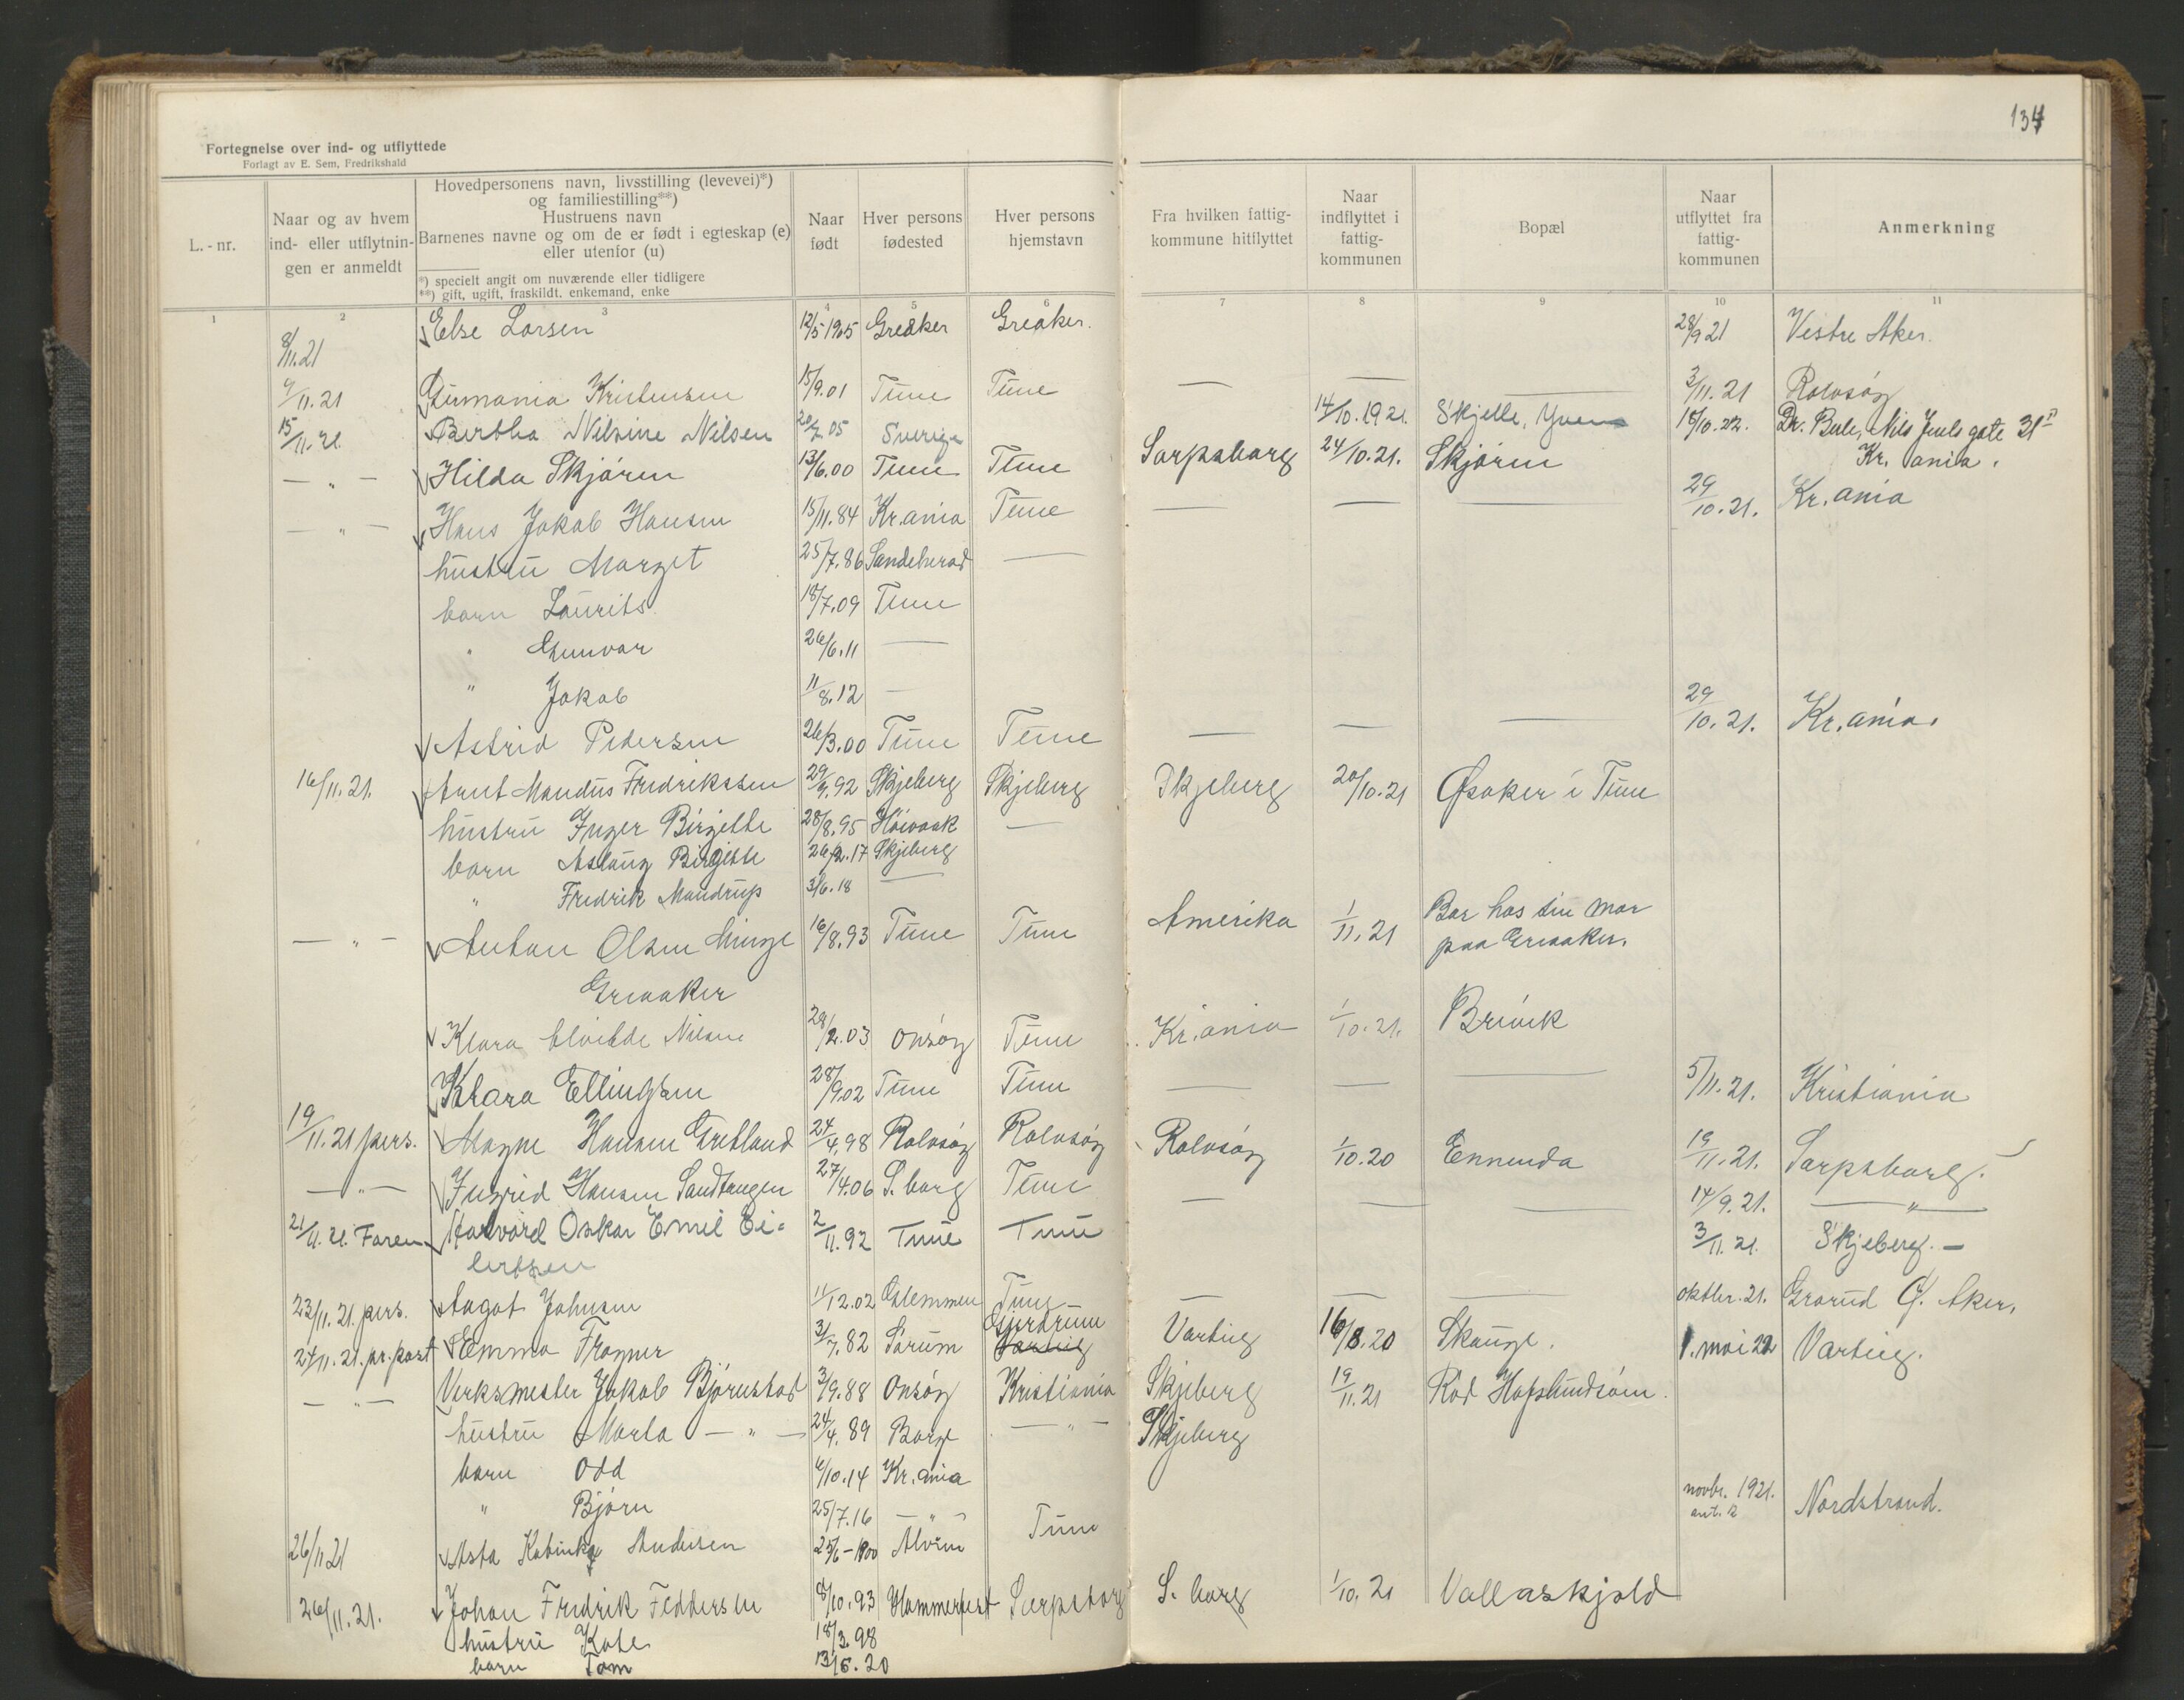 134
Fortegnelse over ind- og utflyttede
Forlagt av E. Sem, Fredrikshald
L.-nr.
Naar og av hvem ind- eller utflytnin-gen er anmeldt
Hovedpersonens navn, livsstilling (levevei)*)
og familiestilling**)
Hustruens navn
Barnenes navne og om de er født i egteskap (e)
eller utenfor (u)
*) specielt angit om nuværende eller tidligere
**) gift, ugift, fraskildt. enkemand, enke
Naar født
Hver persons fødested
Hver persons hjemstavn
Fra hvilken fattig-kommune hitflyttet
Naar indflyttet i fattig-kommunen
Bopæl
Naar utflyttet fra fattig-kommunen
Anmerkning
1 2 3 4 5 6 7 8 9 10 11
8/11.21 Else Larsen 12/5 1905 Greaker Greaker. 28/9 21 Vestre Aker.
9/11.21 Kristensen 15/9.01 Tune Tune — — — 3/11.21 Rolvsøy
15/11.21 Bertha Nilsine Nilsen 20/7 05 Sverige 14/10.1921. Skjelle, Yven 15/10.22. Dr. Bule, Nils Juels gate 31 II
Kr. ania.
— " — Hilda Skjøren 13/6.00 Tune Tune Sarpsborg 24/10.21. Skjøren
— " — Hans Jakob Hansen 15/11.84 Kr.ania Tune — — — 29/10.21. Kr.ania
hustru Marget 25/7.86 Sandeherad —
barn Laurits 18/7.09 Tune
" Gunvor 26/6.11 —
" Jakob 11/8.12 —
Astrid Pedersen 26/3.00 Tune Tune — — — 29/10.21. Kr.ania.
16/11.21. Arnt Mandus Fredrikssen 29/9.92 Skjeberg Skjeberg Skjeberg 20/10.21 Øsaker i Tune
hustru Inger Birgitte 28/8.95 Høivaak —
barn Aslaug Birgitte 26/2.17 Skjeberg
" Fredrik Mandrup 3/6.18 —
— " — Anton Olsen Minge 16/8.93 Tune Tune Amerika 1/11.21 Bor hos sin mor
paa Greaaker.
Greaaker
Klara Nilsen 28/2.03 Onsøy Tune Kr.ania 1/10.21. Brevik
Klara Ellingsen 28/9.02 Tune Tune — — — 5/11.21. Kristiania
19/11.21 pers. Magne Hansen Gretland 24/4.98 Rolvsøy Rolvsøy Rolvsøy 1/10.20 Ennenda 19/11.21. Sarpsborg.
— " — Ingrid Hansen Sandtangen 27/4.06 S.borg Tune — — — 14/9.21. — " —
21/11.21. Faren Halvard Oskar Emil Ei-
lertsen 2/11.92 Tune Tune 3/11.21. Skjeberg. —
23/11.21. pers. Aagot Johnsen 11/12.02 Glemmen Tune — — — oktbr.21. Grorud Ø. Aker.
24/11.21. pr. post Emma Trogner 3/7.82 Sørum Gjerdrum Varteig Varteig 16/8.20 Skauge. 1. mai 22 Varteig.
— " — Verksmester Jakob Bjørnstad 3/9.88 Onsøy Kristiania Skjeberg 19/11.21 Rød Hafslundsøen.
hustru Marta — " — 24/4.89 Borge — " — Skjeberg
barn Odd 6/10.14 Kr.ania
" Bjørn 25/7.16 — " —
26/11 21 Asta Katinka Andersen 25/6-1900 Alvim Tune novbr. 1921. Nordstrand.
26/11.21. Johan Fredrik Feddersen 8/10.93 Hammerfest Sarpsborg S.borg 1/10.21 Vallaskjold
hustru Kate 18/3.98
barn Tom 13/6.20